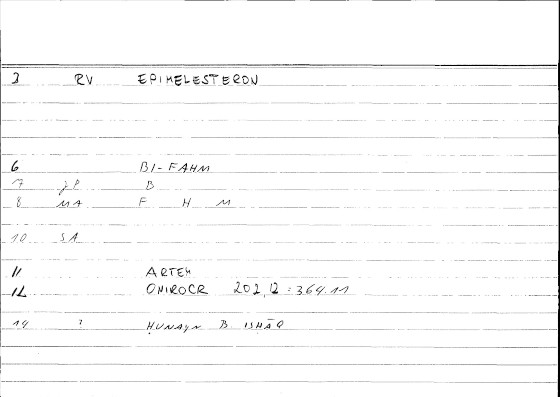 3 RV EPIMELESTERON
6 BI-FAHM
7 JP B
8 MA F H M
10 SA
11 ARTEM
12 ONIROCR 202,12 : 364.11
14 ? ḤUNAYN B. ISḤĀQ